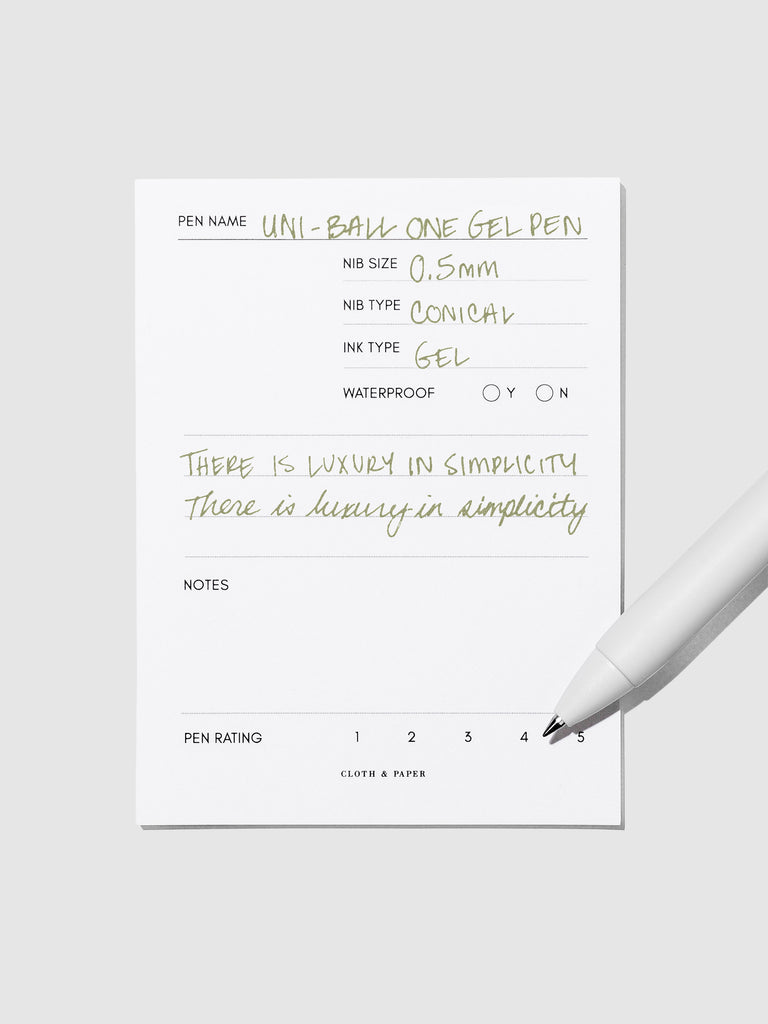 PEN NAME UNI-BALL ONE GEL PEN
NIB SIZE 0.5mm
NIB TYPE CONICAL
INK TYPE GEL
WATERPROOF Y N
THERE IS LUXURY IN SIMPLICITY
There is luxury in simplicity
NOTES
PEN RATING 1 2 3 4 5
CLOTH & PAPER